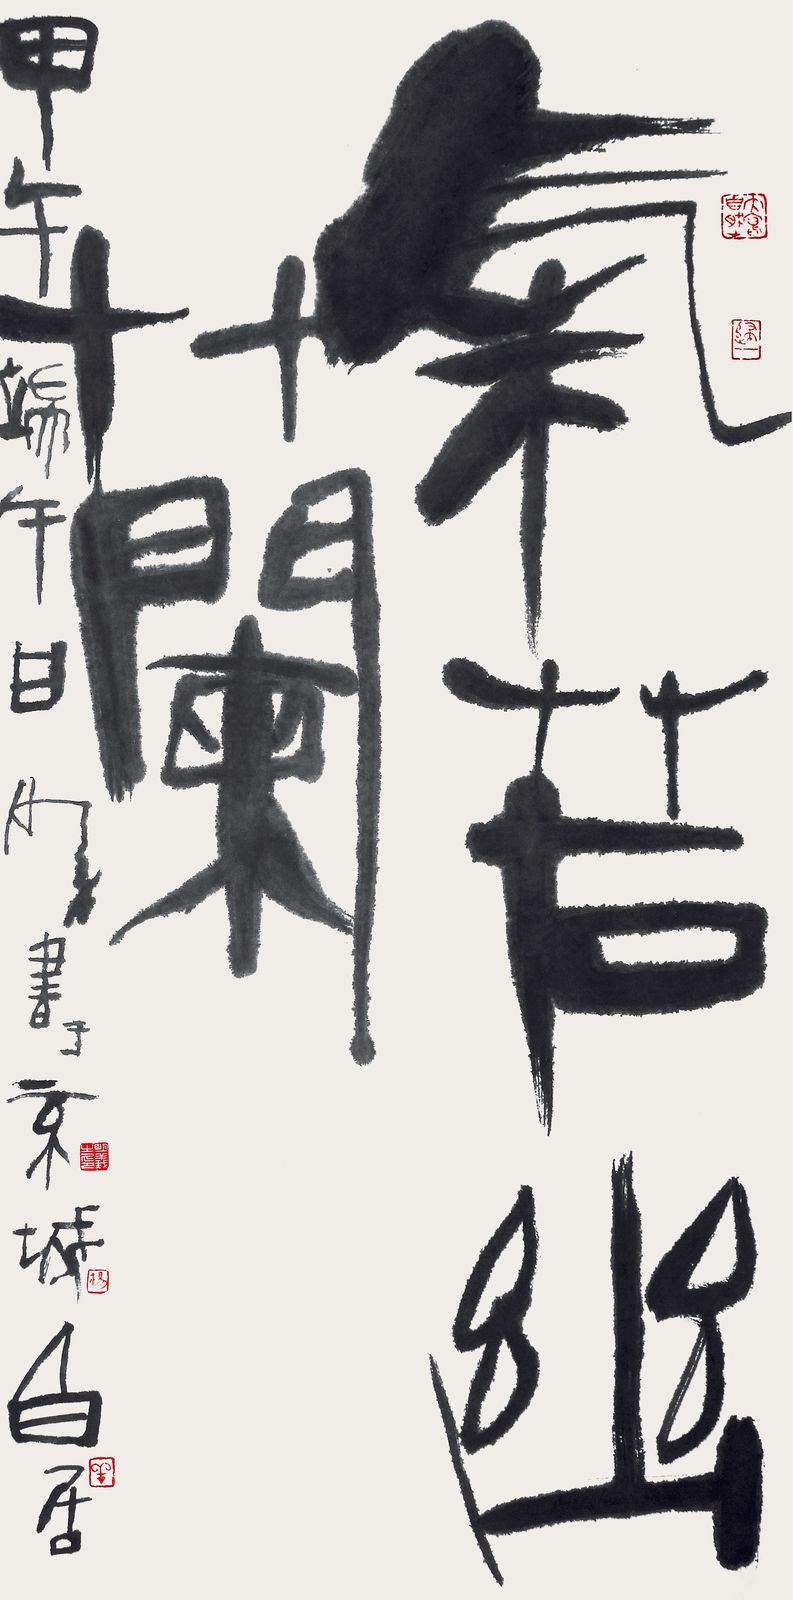 氣若幽
蘭
甲午端午日
書于京城白居